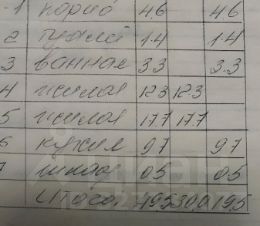 1 корид 4.6 4.6
2 туалет 1.4 1.4
3 ванная 3.3 3.3
4 жилая 12.3 12.3
5 жилая 17.7 17.7
6 кухня 9.7 9.7
7 шкаф 0.5 0.5
Итого 49.5 30.0 19.5